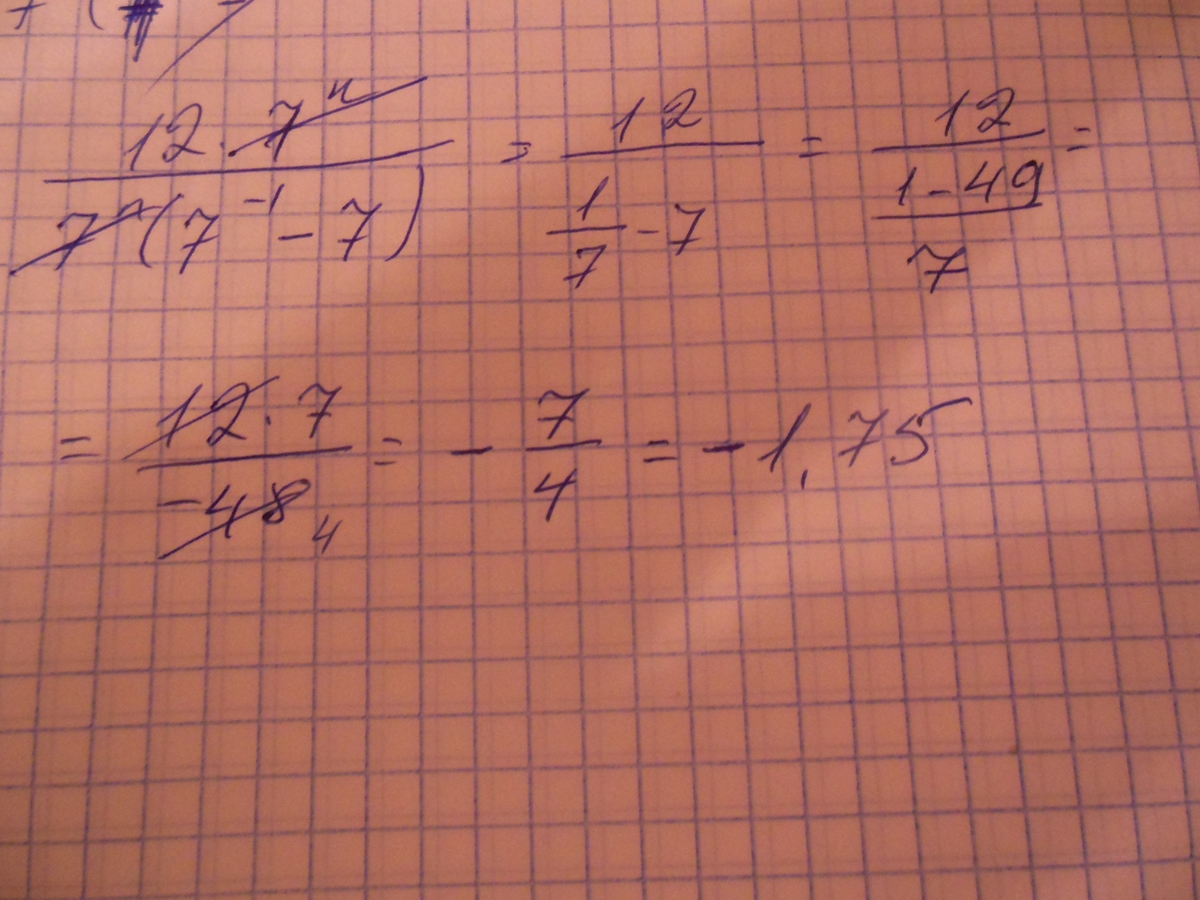 (12 · 7^n) / (7^n (7^-1 - 7)) = 12 / (1/7 - 7) = 12 / ((1 - 49)/7) =
= (12 · 7) / (-48 4) = - 7/4 = - 1,75